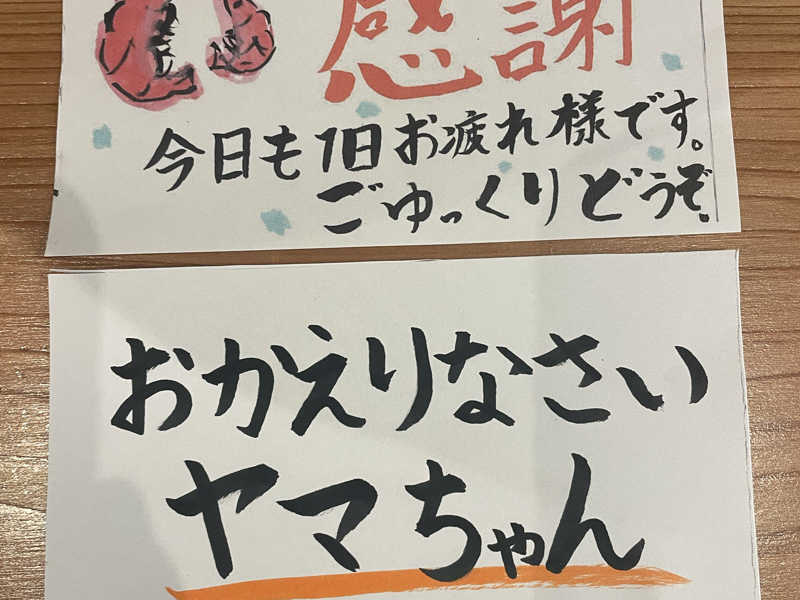 感謝
今日も1日お疲れ様です。
ごゆっくりどうぞ。
おかえりなさい
ヤマちゃん